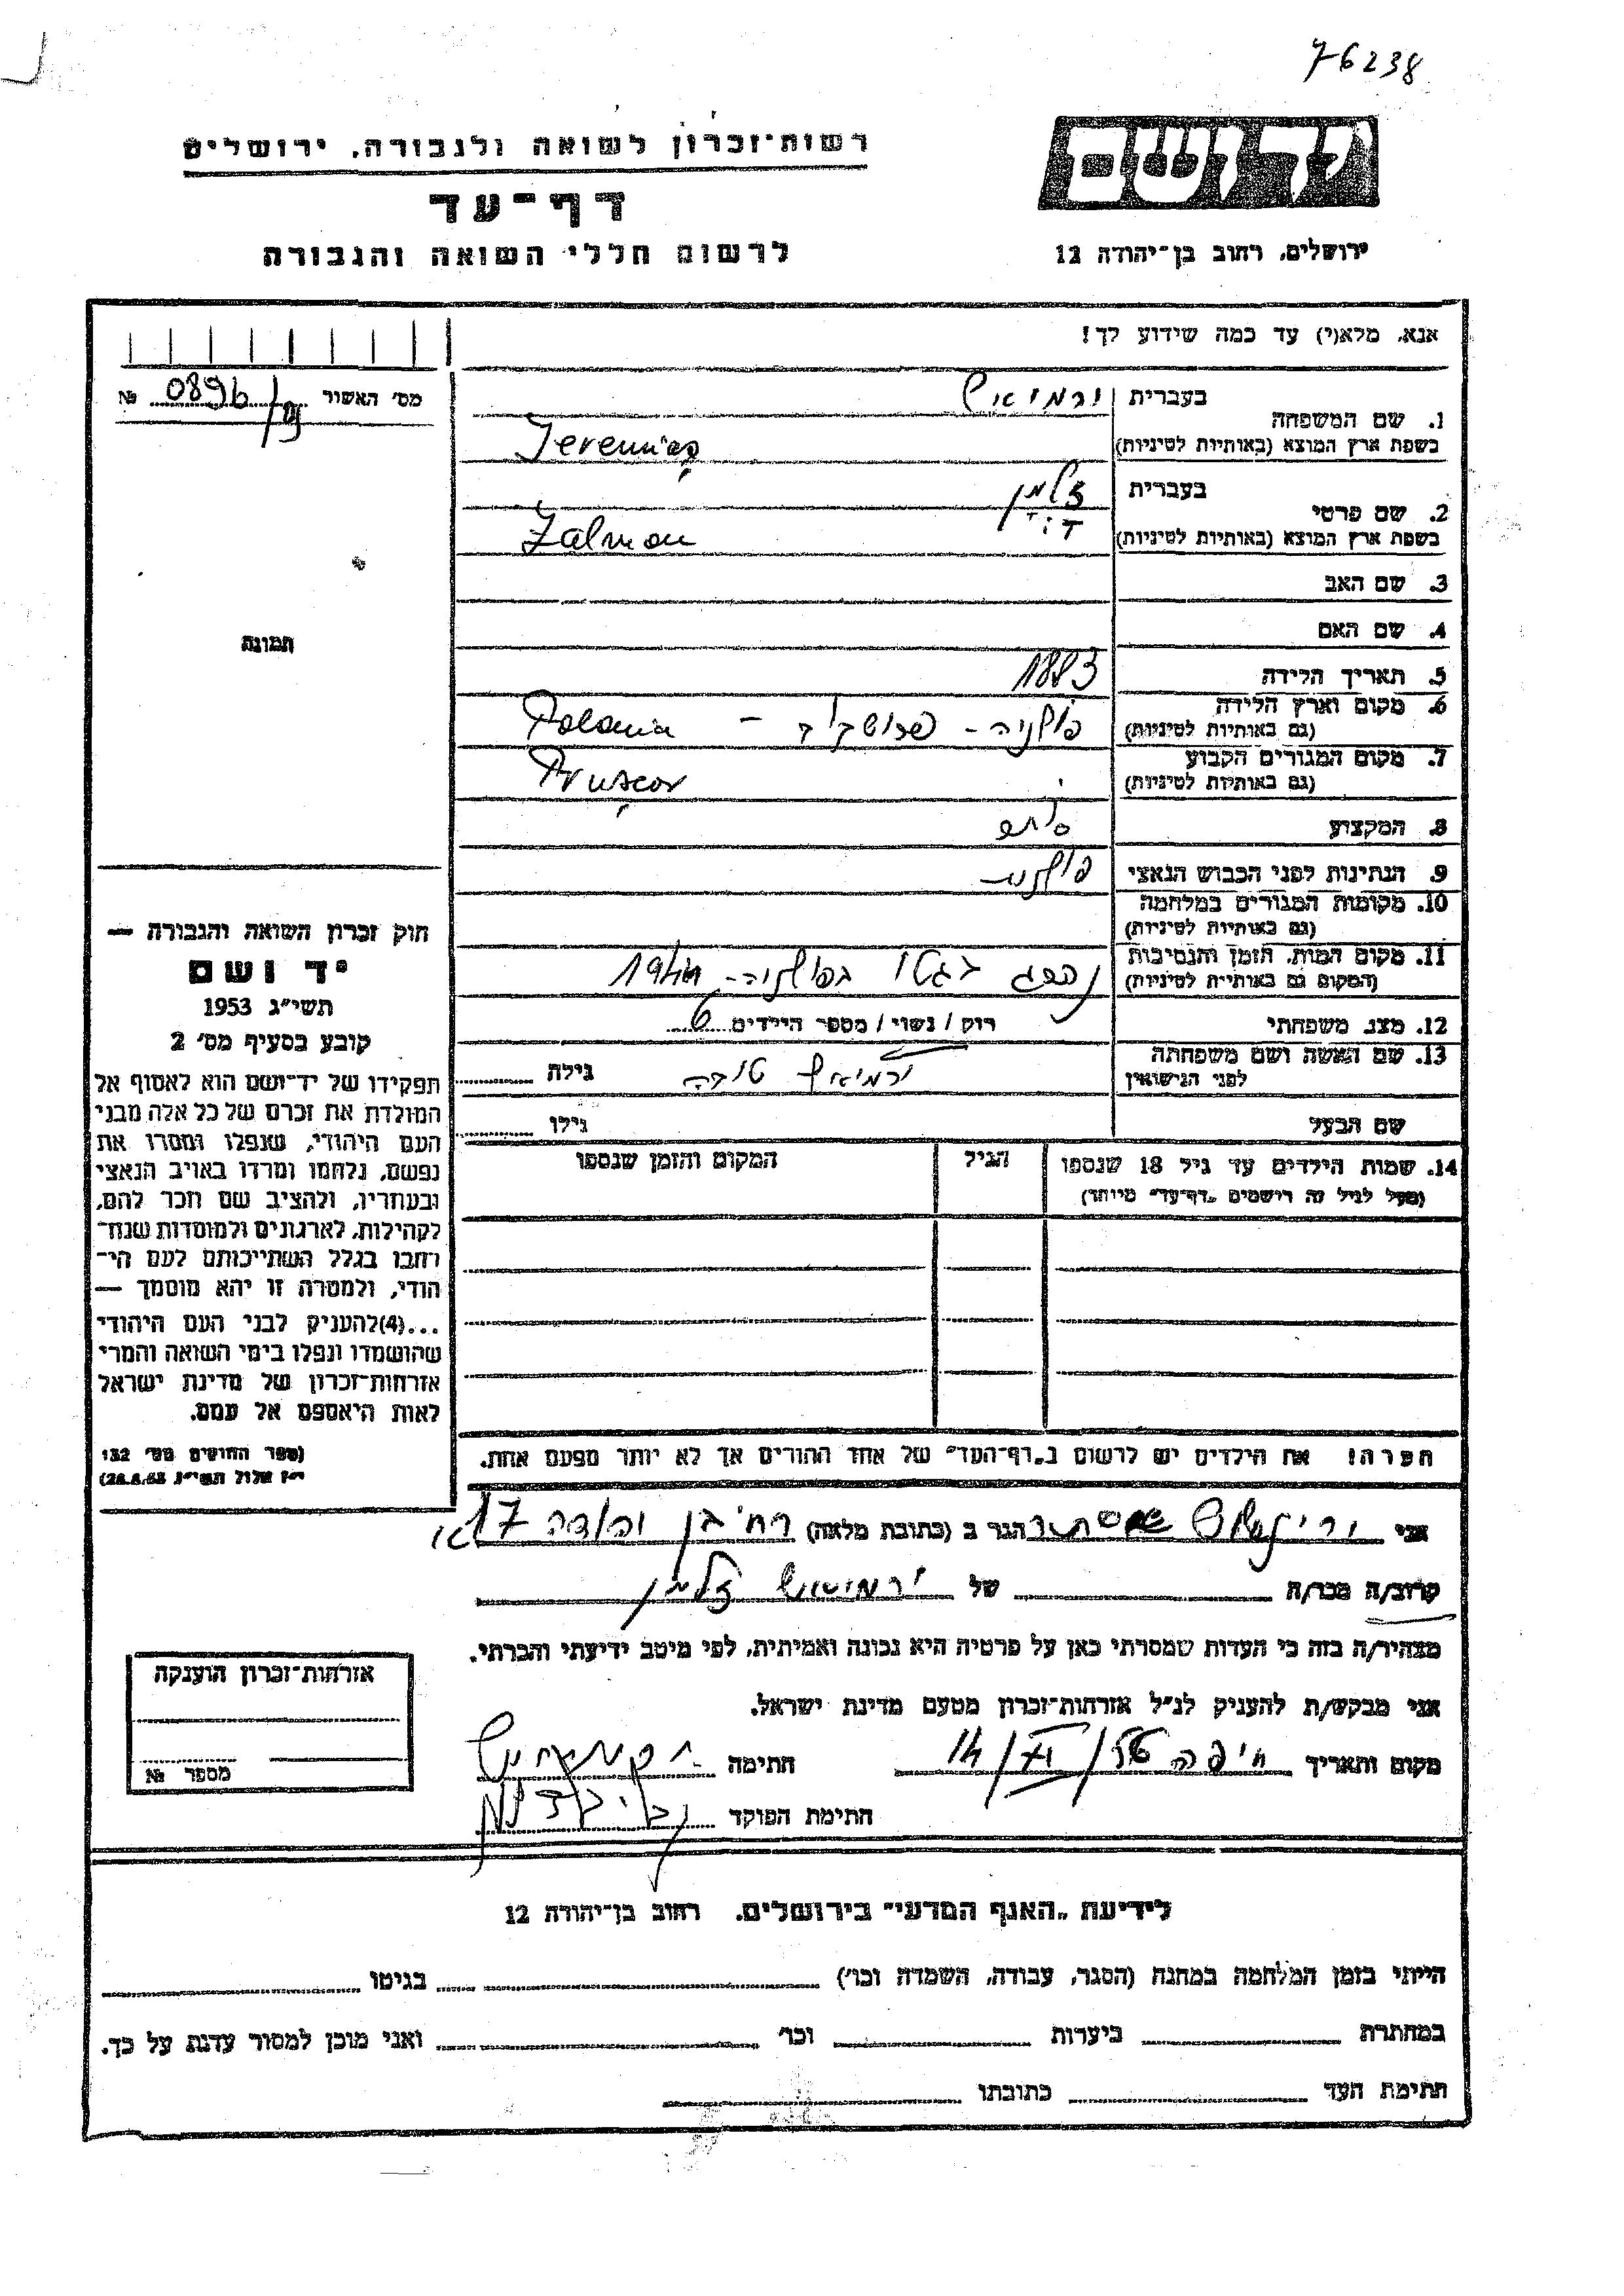 76238
רשות־זכרון לשואה ולגבורה, ירושלים
דף־עד
לרשום חללי השואה והגבורה
ירושלים, רחוב בן־יהודה 12
אנא, מלא(י) עד כמה שידוע לך!
מס' האשור № 0896
1. שם המשפחה
בעברית ירמיאש
בשפת ארץ המוצא (באותיות לטיניות) Jeremiaş
2. שם פרטי
בעברית זלמן
דוד
בשפת ארץ המוצא (באותיות לטיניות) Zalman
3. שם האב
4. שם האם
תמונה
5. תאריך הלידה 1883
6. מקום וארץ הלידה פולניה - פרושקוב - Polonia
(גם באותיות לטיניות)
7. מקום המגורים הקבוע Pruşcov
(גם באותיות לטיניות)
8. המקצוע
9. הנתינות לפני הכבוש הנאצי פולנית
10. מקומות המגורים במלחמה
(גם באותיות לטיניות)
11. מקום המות, הזמן והנסיבות נהרג בגטו בפולניה - 1944
(המקום גם באותיות לטיניות)
12. מצב משפחתי רוק / נשוי / מספר הילדים 6
13. שם האשה ושם משפחתה
לפני הנישואין ירמיאש טובה גילה
שם הבעל גילו
14. שמות הילדים עד גיל 18 שנספו הגיל המקום והזמן שנספו
(מעל לגיל זה רושמים „דף־עד" מיוחד)
הערה! את הילדים יש לרשום ב„דף־העד" של אחד ההורים אך לא יותר מפעם אחת.
חוק זכרון השואה והגבורה —
יד ושם
תשי״ג 1953
קובע בסעיף מס' 2
תפקידו של יד־ושם הוא לאסוף אל
המולדת את זכרם של כל אלה מבני
העם היהודי, שנפלו ומסרו את
נפשם, נלחמו ומרדו באויב הנאצי
ובעוזריו, ולהציב שם וזכר להם,
לקהילות, לארגונים ולמוסדות שנח־
רבו בגלל השתייכותם לעם הי־
הודי, ולמטרה זו יהא מוסמך —
...(4)להעניק לבני העם היהודי
שהושמדו ונפלו בימי השואה והמרי
אזרחות־זכרון של מדינת ישראל
לאות היאספם אל עמם.
(ספר החוקים מס' 132
י״ז אלול תשי״ג 28.8.53)
אני ירמיאש אסתר הגר ב (כתובת מלאה) רח' בן יהודה 17
קרוב/ה מכר/ה של ירמיאש זלמן
מצהיר/ה בזה כי העדות שמסרתי כאן על פרטיה היא נכונה ואמיתית, לפי מיטב ידיעתי והכרתי.
אני מבקש/ת להעניק לנ״ל אזרחות־זכרון מטעם מדינת ישראל.
מקום ותאריך חיפה 14/VI/56 חתימה
חתימת הפוקד
אזרחות־זכרון הוענקה
מספר №
לידיעת „האגף המדעי" בירושלים, רחוב בן־יהודה 12
הייתי בזמן המלחמה במחנה (הסגר, עבודה, השמדה וכו') בגיטו
במחתרת ביערות וכו' ואני מוכן למסור עדות על כך.
חתימת העד כתובתו